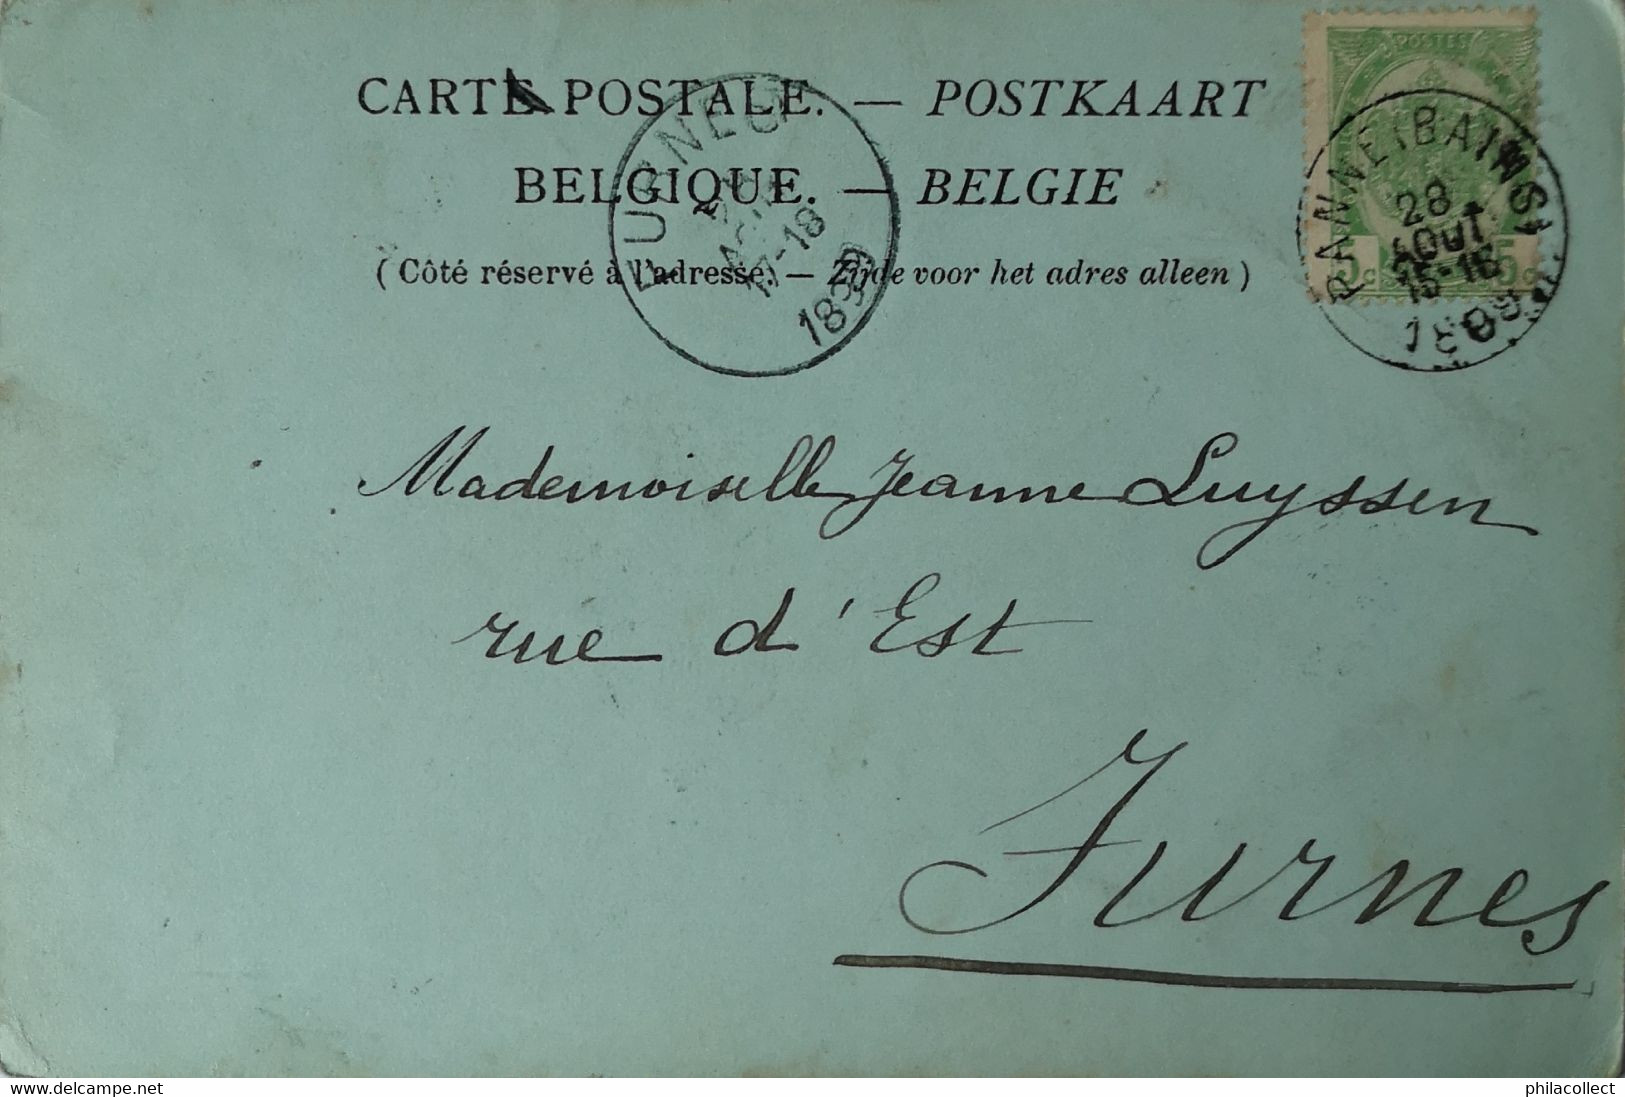 CARTE POSTALE. — POSTKAART
BELGIQUE. — BELGIE
(Côté réservé à l'adresse. — Zijde voor het adres alleen)
POSTES
5c 5c
PANNE (BAINS)
28
AOUT
15-16
1899
FURNES
17-18
1899
Mademoiselle Jeanne Luyssen
rue d'Est
Furnes
delcampe.net
philacollect